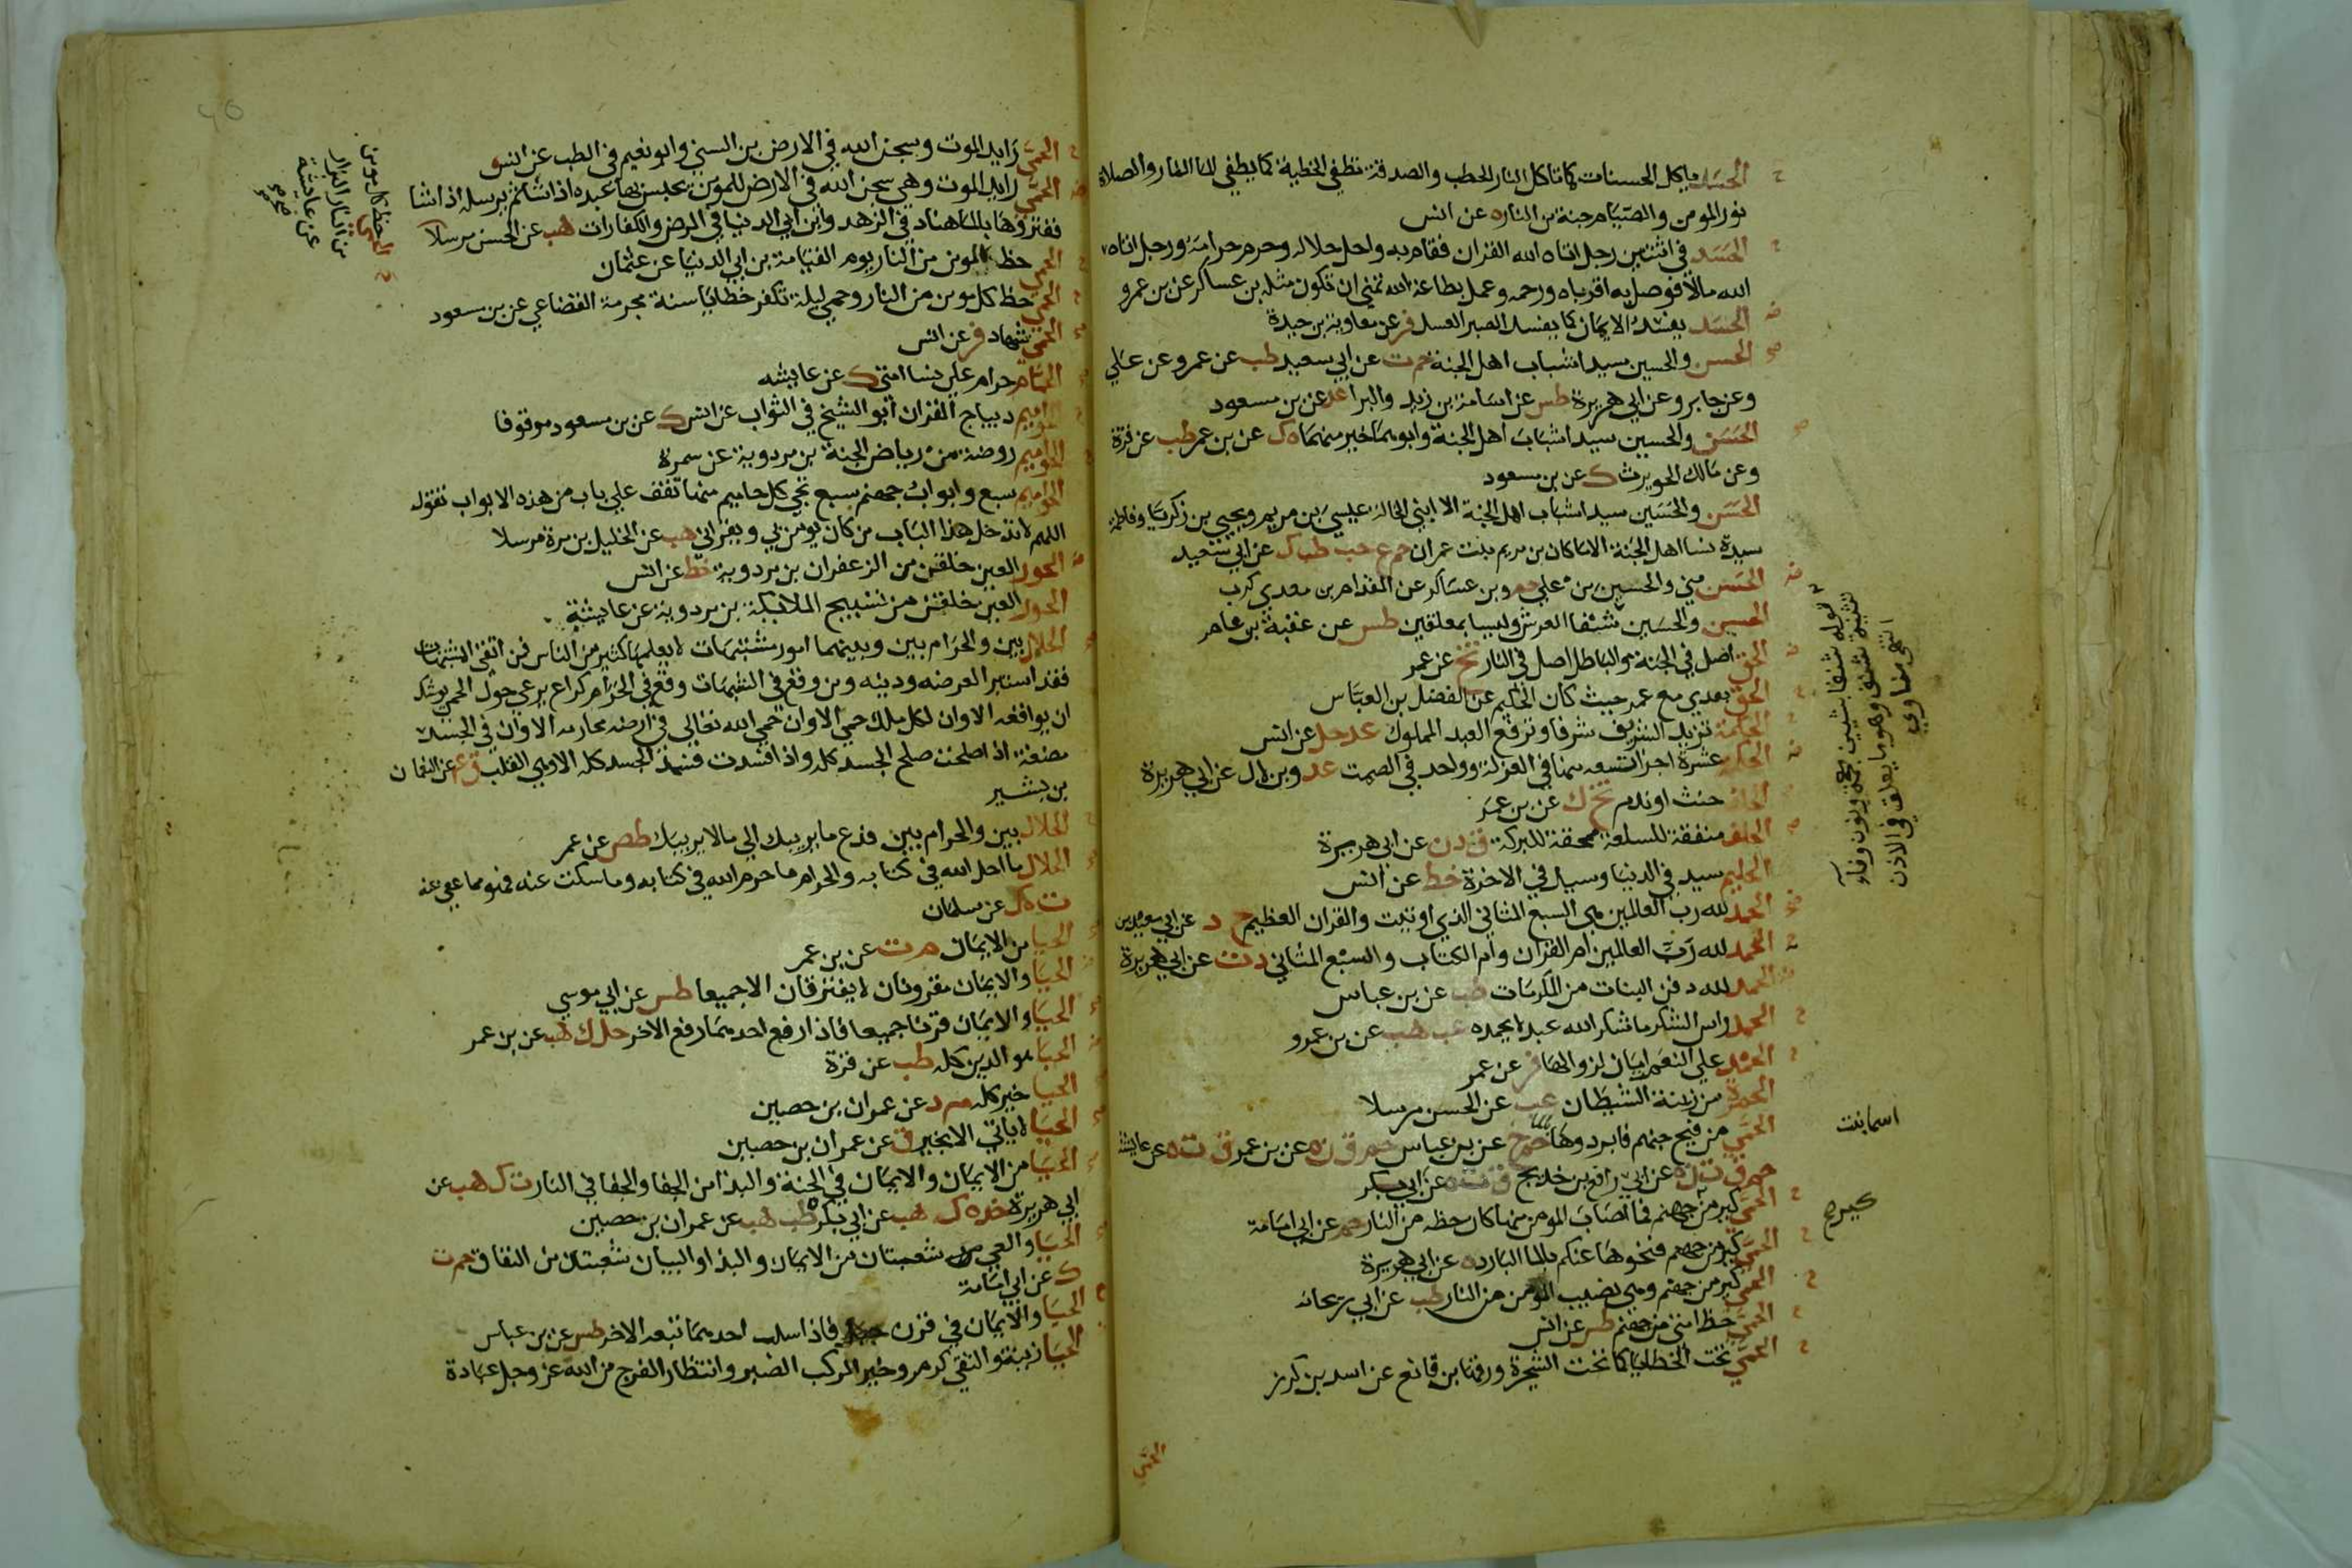 الحسد ياكل الحسنات كما تاكل النار الحطب والصدقة تطفي الخطية كما يطفي الما النار والصلاة
نور المومن والصيام جنة من النار ه عن انس
الحسد في اثنتين رجل اتاه الله القران فقام به واحل حلاله وحرم حرامه ورجل اتاه
الله مالا فوصل به اقرباه ورحمه وعمل بطاعة الله تمني ان تكون مثله بن عساكر عن بن عمرو
الحسد يفسد الايمان كما يفسد الصبر العسل فر عن معاوية بن حيدة
الحسن والحسين سيدا شباب اهل الجنة حم ت عن ابي سعيد طب عن عمر وعن علي
وعن جابر وعن ابي هريرة طس عن اسامة بن زيد والبرا عد عن بن مسعود
الحسن والحسين سيدا شباب اهل الجنة وابوهما خير منهما ه ك عن بن عمر طب عن قرة
وعن مالك الحويرث ك عن بن مسعود
الحسن والحسين سيدا شباب اهل الجنة الا ابني الخالة عيسي بن مريم ويحيي بن زكريا وفاطمة
سيدة نسا اهل الجنة الا ما كان من مريم بنت عمران حم ع حب طب ك عن ابي سعيد
الحسن مني والحسين من علي حم وبن عساكر عن المقدام بن معدي كرب
الحسن والحسين شنفا العرش وليسا بمعلقين طس عن عقبة بن عامر
الحق اصل في الجنة والباطل اصل في النار تخ عن عمر
الحق بعدي مع عمر حيث كان الحكيم عن الفضل بن العباس
الحكمة تزيد الشريف شرفا وترفع العبد المملوك عد حل عن انس
الحكمة عشرة اجزا تسعة منها في العزلة وواحد في الصمت عد وبن لال عن ابي هريرة
الحلف حنث او ندم تخ ك عن بن عمر
الحلف منفقة للسلعة ممحقة للبركة ق د ن عن ابي هريرة
الحليم سيد في الدنيا وسيد في الاخرة خط عن انس
الحمد لله رب العالمين هي السبع المثاني الذي اوتيت والقران العظيم خ د عن ابي سعيد بن
الحمد لله رب العالمين ام القران وام الكتاب والسبع المثاني د ت عن ابي هريرة
الحمد لله دفن البنات من المكرمات طب عن بن عباس
الحمد راس الشكر ما شكر الله عبد لا يحمده عب هب عن بن عمرو
الحمد علي النعم امان لزوالها فر عن عمر
الحمرة من زينة الشيطان عب عن الحسن مرسلا
الحمي من فيح جهنم فابردوها بالما حم خ عن بن عباس حم ق ن ه عن بن عمر ق ت ه عن عايشة
حم ق ت ن ه عن رافع بن خديج ق ت ه عن اسما بنت ابي بكر
الحمي كير من جهنم فما اصاب المومن منها كان حظه من النار حم عن ابي امامة
الحمي كير من جهنم فنحوها عنكم بالما البارد ه عن ابي هريرة
الحمي كير من جهنم وهي نصيب المومن من النار طب عن ابي ريحانة
الحمي حظ امتي من جهنم طس عن انس
الحمي تحت الخطايا كما تحت الشجرة ورقها بن قانع عن اسد بن كرز
قوله شنفا بشين معجمة ونون وفاء
تثنية شنف وهو ما يعلق في الاذن
انتهي مناوي
اسما بنت
كير ح
الحمي
الحمي رايد الموت وسجن الله في الارض بن السني وابو نعيم في الطب عن انس
الحمي رايد الموت وهي سجن الله في الارض للمومن يحبس بها عبده اذا شا ثم يرسله اذا شا
ففتروها بالما هناد في الزهد وابن ابي الدنيا في المرض والكفارات هب عن الحسن مرسلا
الحمي حظ المومن من النار يوم القيامة بن ابي الدنيا عن عثمان
الحمي حظ كل مومن من النار وحمي ليلة تكفر خطايا سنة مجرمة القضاعي عن بن مسعود
الحمي شهادة فر عن انس
الحمام حرام علي نسا امتي ك عن عايشه
الحواميم ديباج القران ابو الشيخ في الثواب عن انس ك عن بن مسعود موقوفا
الحواميم روضة من رياض الجنة بن مردوية عن سمرة
الحواميم سبع وابواب جهنم سبع تجي كل حاميم منها تقف علي باب من هذه الابواب تقول
اللهم لا تدخل هذا الباب من كان يومن بي ويقراني هب عن الخليل بن مرة مرسلا
الحور العين خلقن من الزعفران بن مردوية خط عن انس
الحور العين خلقن من تسبيح الملايكة بن مردوية عن عايشة
الحلال بين والحرام بين وبينهما امور مشتبهات لا يعلمها كثير من الناس فمن اتقي الشبهات
فقد استبرا لعرضه ودينه ومن وقع في الشبهات وقع في الحرام كراع يرعي حول الحمي يوشك
ان يواقعه الا وان لكل ملك حمي الا وان حمي الله تعالي في ارضه محارمه الا وان في الجسد
مضغة اذا صلحت صلح الجسد كله واذا فسدت فسد الجسد كله الا وهي القلب ق ع عن النعمان
بن بشير
الحلال بين والحرام بين فدع ما يريبك الي مالا يريبك طص عن عمر
الحلال ما احل الله في كتابه والحرام ما حرم الله في كتابه وما سكت عنه فهو مما عفي عنه
ت ه ك عن سلمان
الحيا من الايمان م ت عن بن عمر
الحيا والايمان مقرونان لا يفترقان الا جميعا طس عن ابي موسي
الحيا والايمان قرنا جميعا فاذا رفع احدهما رفع الاخر حل ك هب عن بن عمر
الحيا هو الدين كله طب عن قرة
الحيا خير كله م د عن عمران بن حصين
الحيا لا ياتي الا بخير ق عن عمران بن حصين
الحيا من الايمان والايمان في الجنة والبذا من الجفا والجفا في النار ت ك هب عن
ابي هريرة خد ه ك هب عن ابي بكرة طب هب عن عمران بن حصين
الحيا والعي شعبتان من الايمان والبذا والبيان شعبتان من النفاق حم ت
ك عن ابي امامة
الحيا والايمان في قرن فاذا سلب احدهما تبعه الاخر طس عن بن عباس
الحيا زينة والتقي كرم وخير المركب الصبر وانتظار الفرج من الله عز وجل عبادة
الحمي حظ كل مومن
من النار البزار
عن عايشة